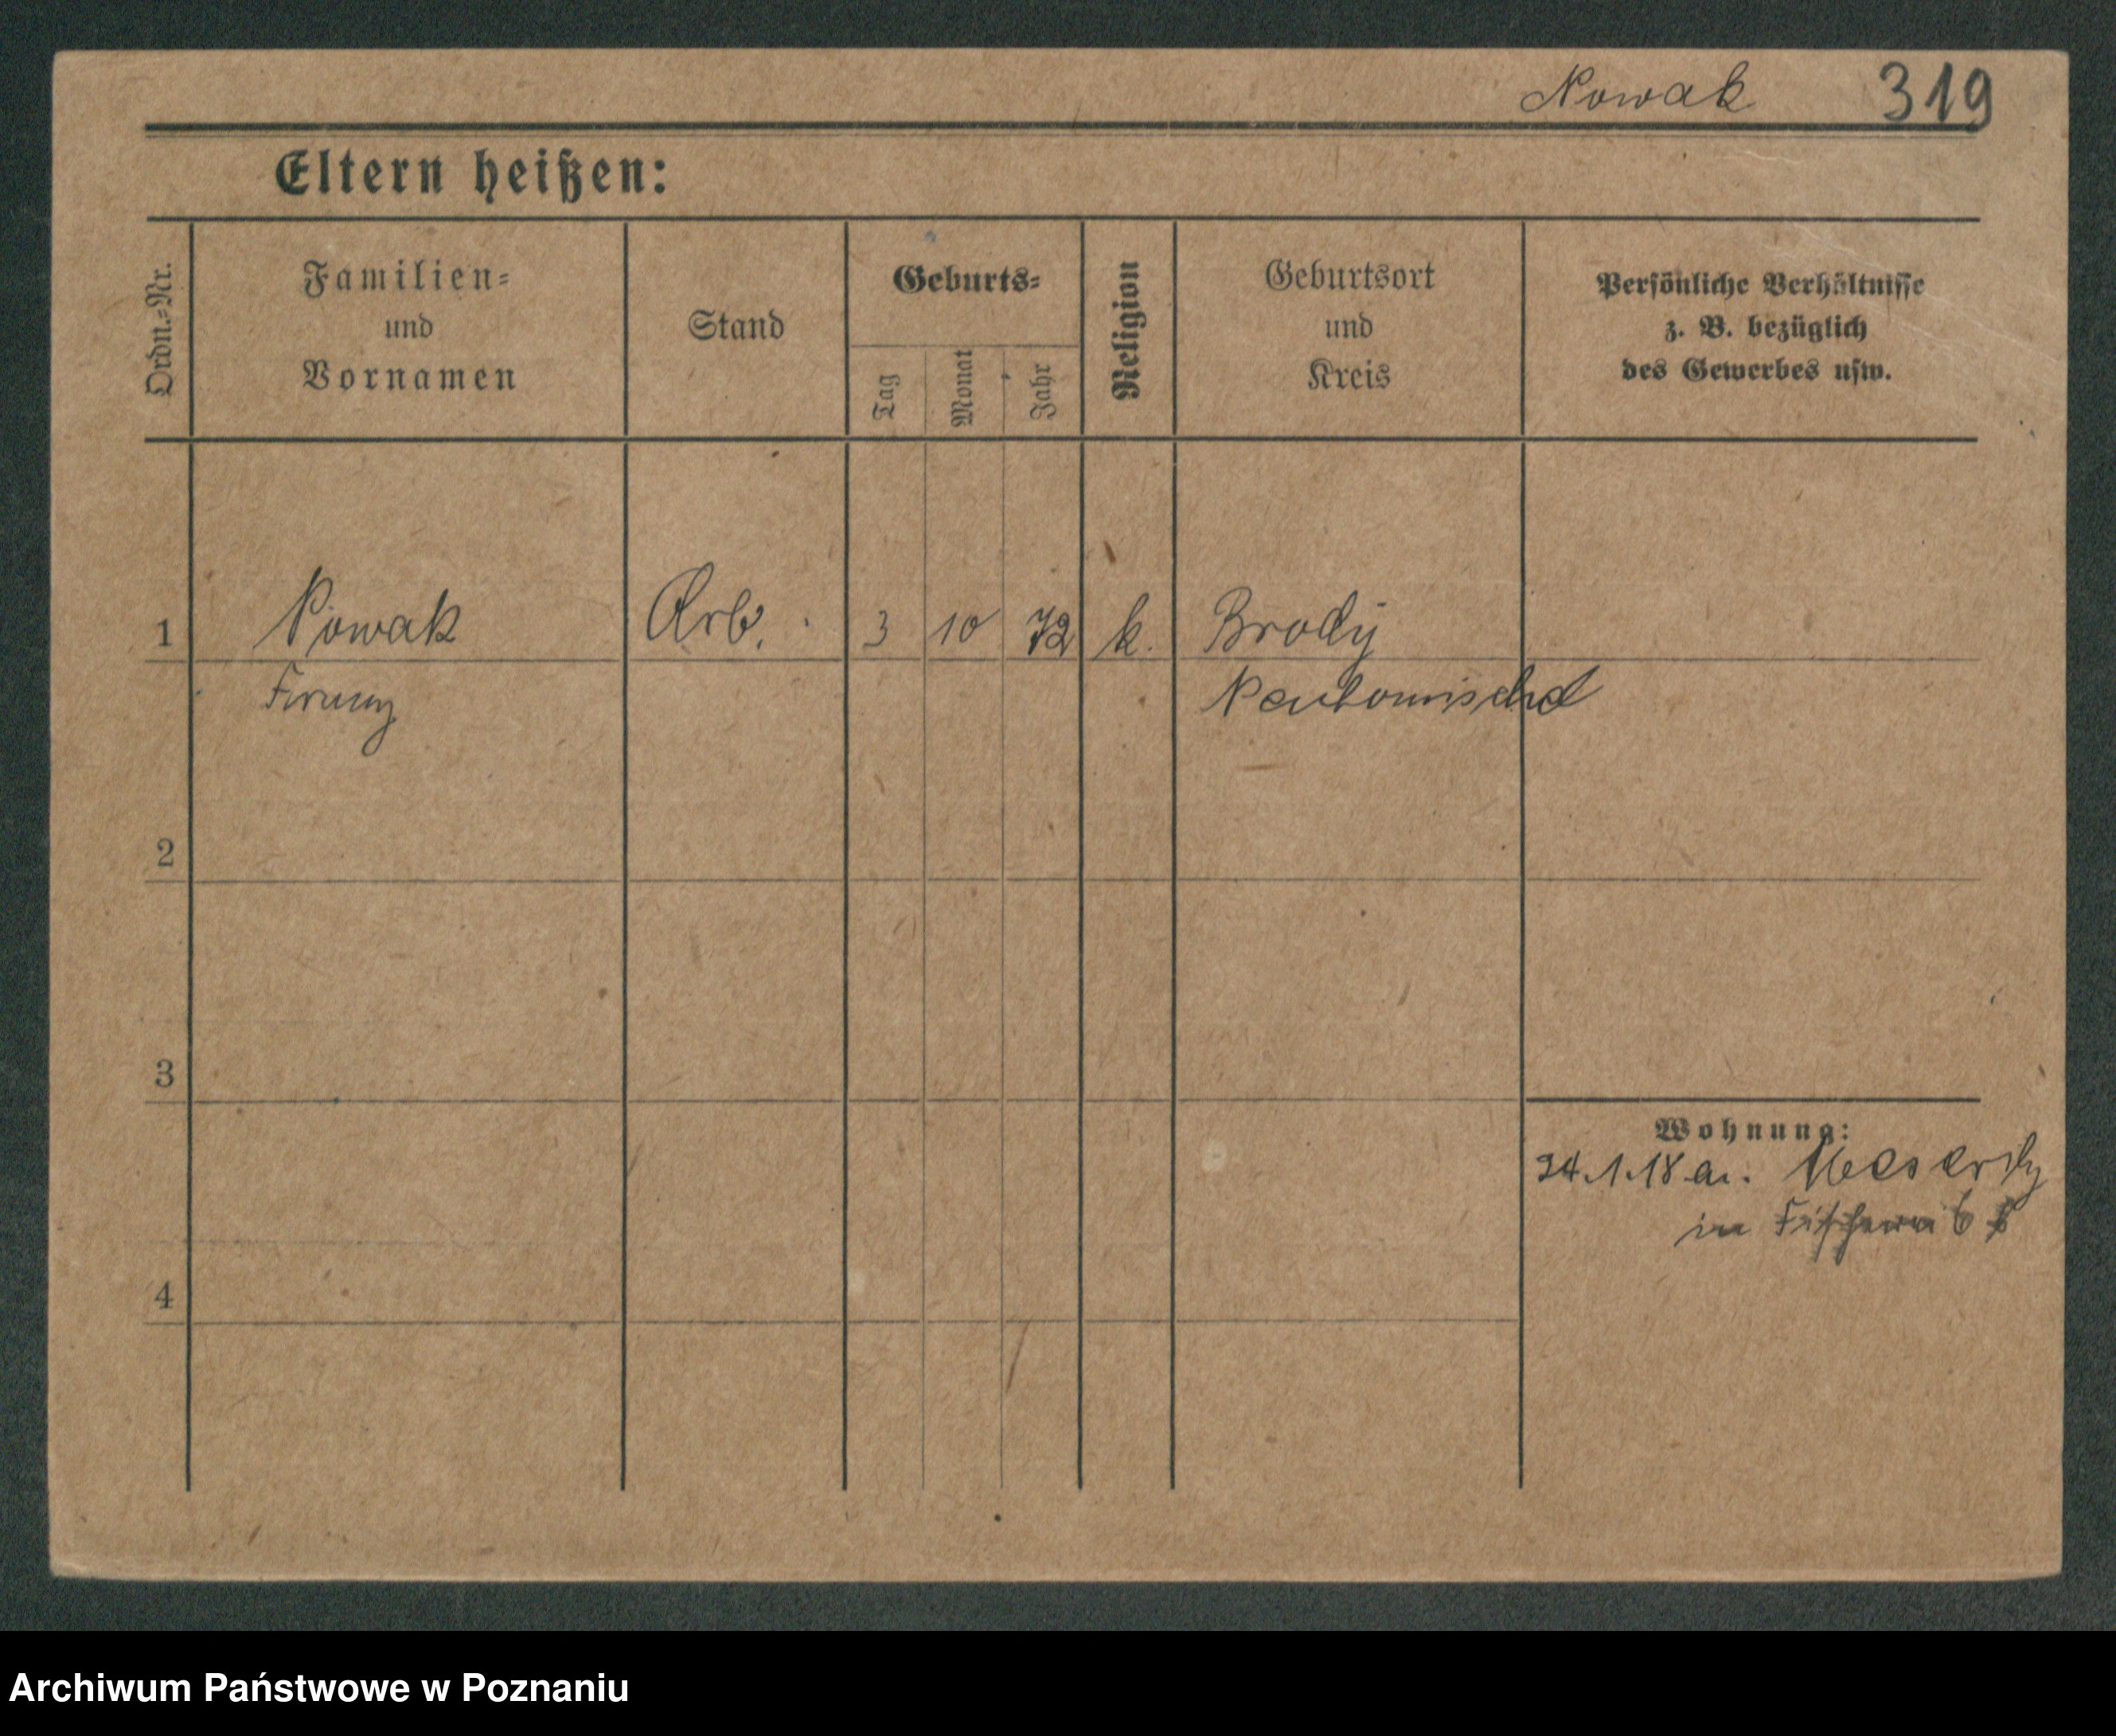 Nowak 319
Eltern heißen:
Ordn.-Nr.
Familien-
und
Vornamen
Stand
Geburts-
Tag
Monat
Jahr
Religion
Geburtsort
und
Kreis
Persönliche Verhältnisse
z. B. bezüglich
des Gewerbes usw.
1 Nowak Arb. 3 10 72 k. Brody
Franz
2
3
Wohnung:
24.1.18 a.
in 6
4
Archiwum Państwowe w Poznaniu